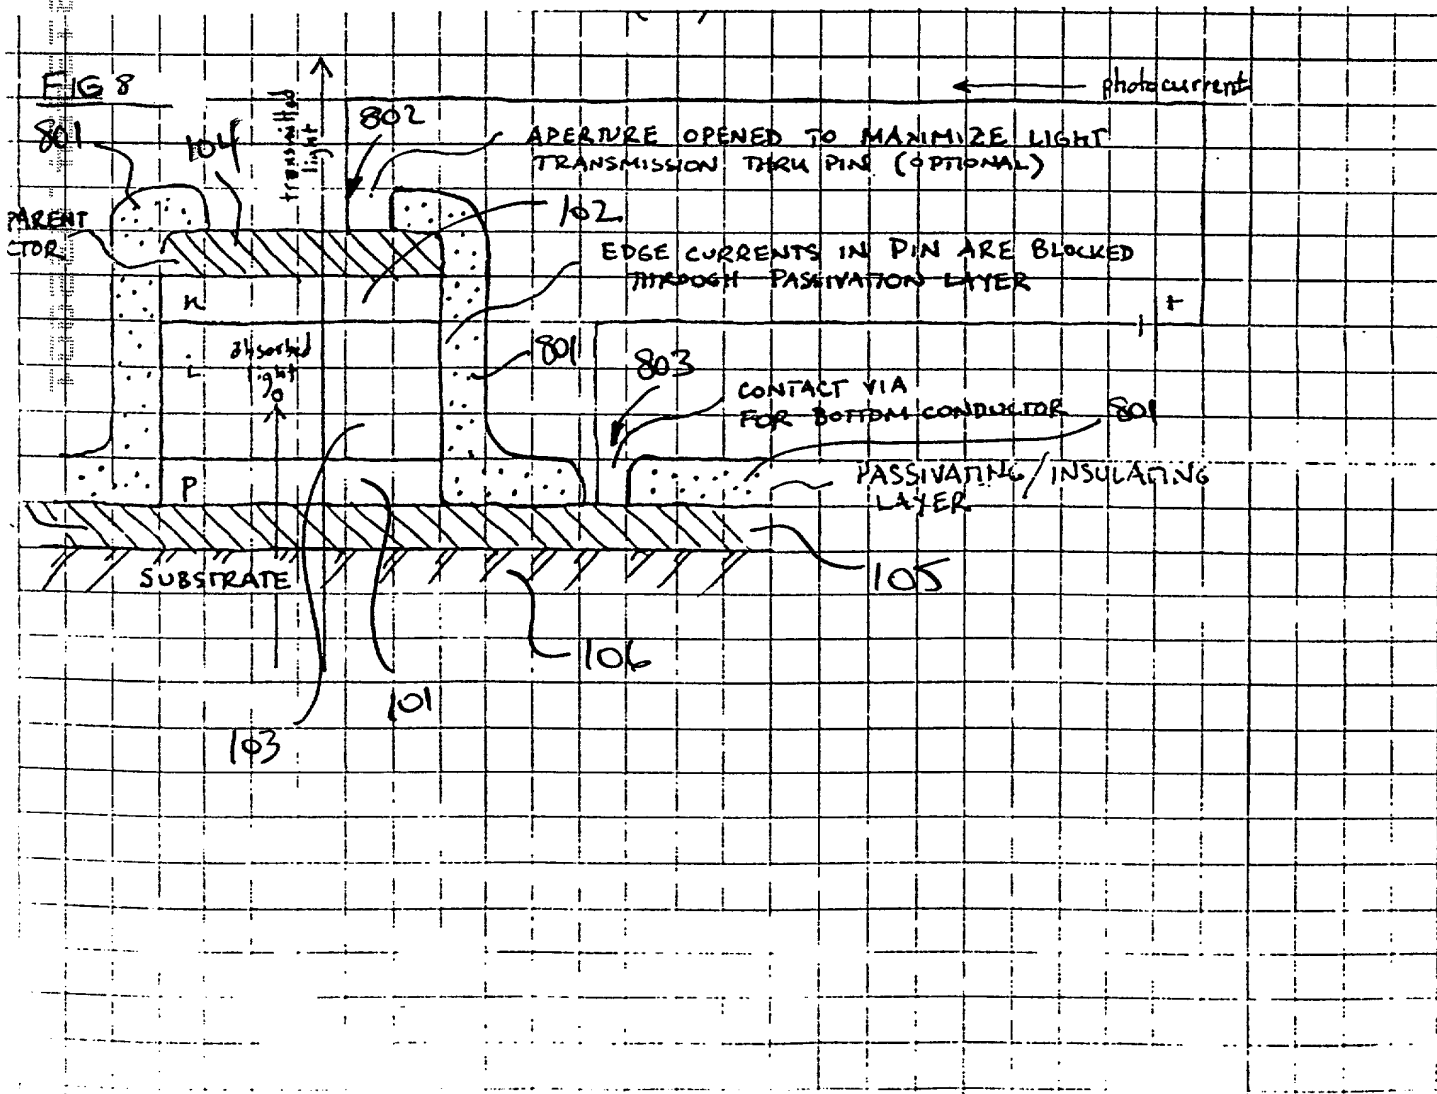 FIG 8
photocurrent
801
104
transmitted
light
802
APERTURE OPENED TO MAXIMIZE LIGHT
TRANSMISSION THRU PIN (OPTIONAL)
PARENT
CTOR
102
EDGE CURRENTS IN PIN ARE BLOCKED
THROUGH PASSIVATION LAYER
n
+
i
absorbed
light
801
803
CONTACT VIA
FOR BOTTOM CONDUCTOR
801
P
PASSIVATING/INSULATING
LAYER
SUBSTRATE
105
106
101
103